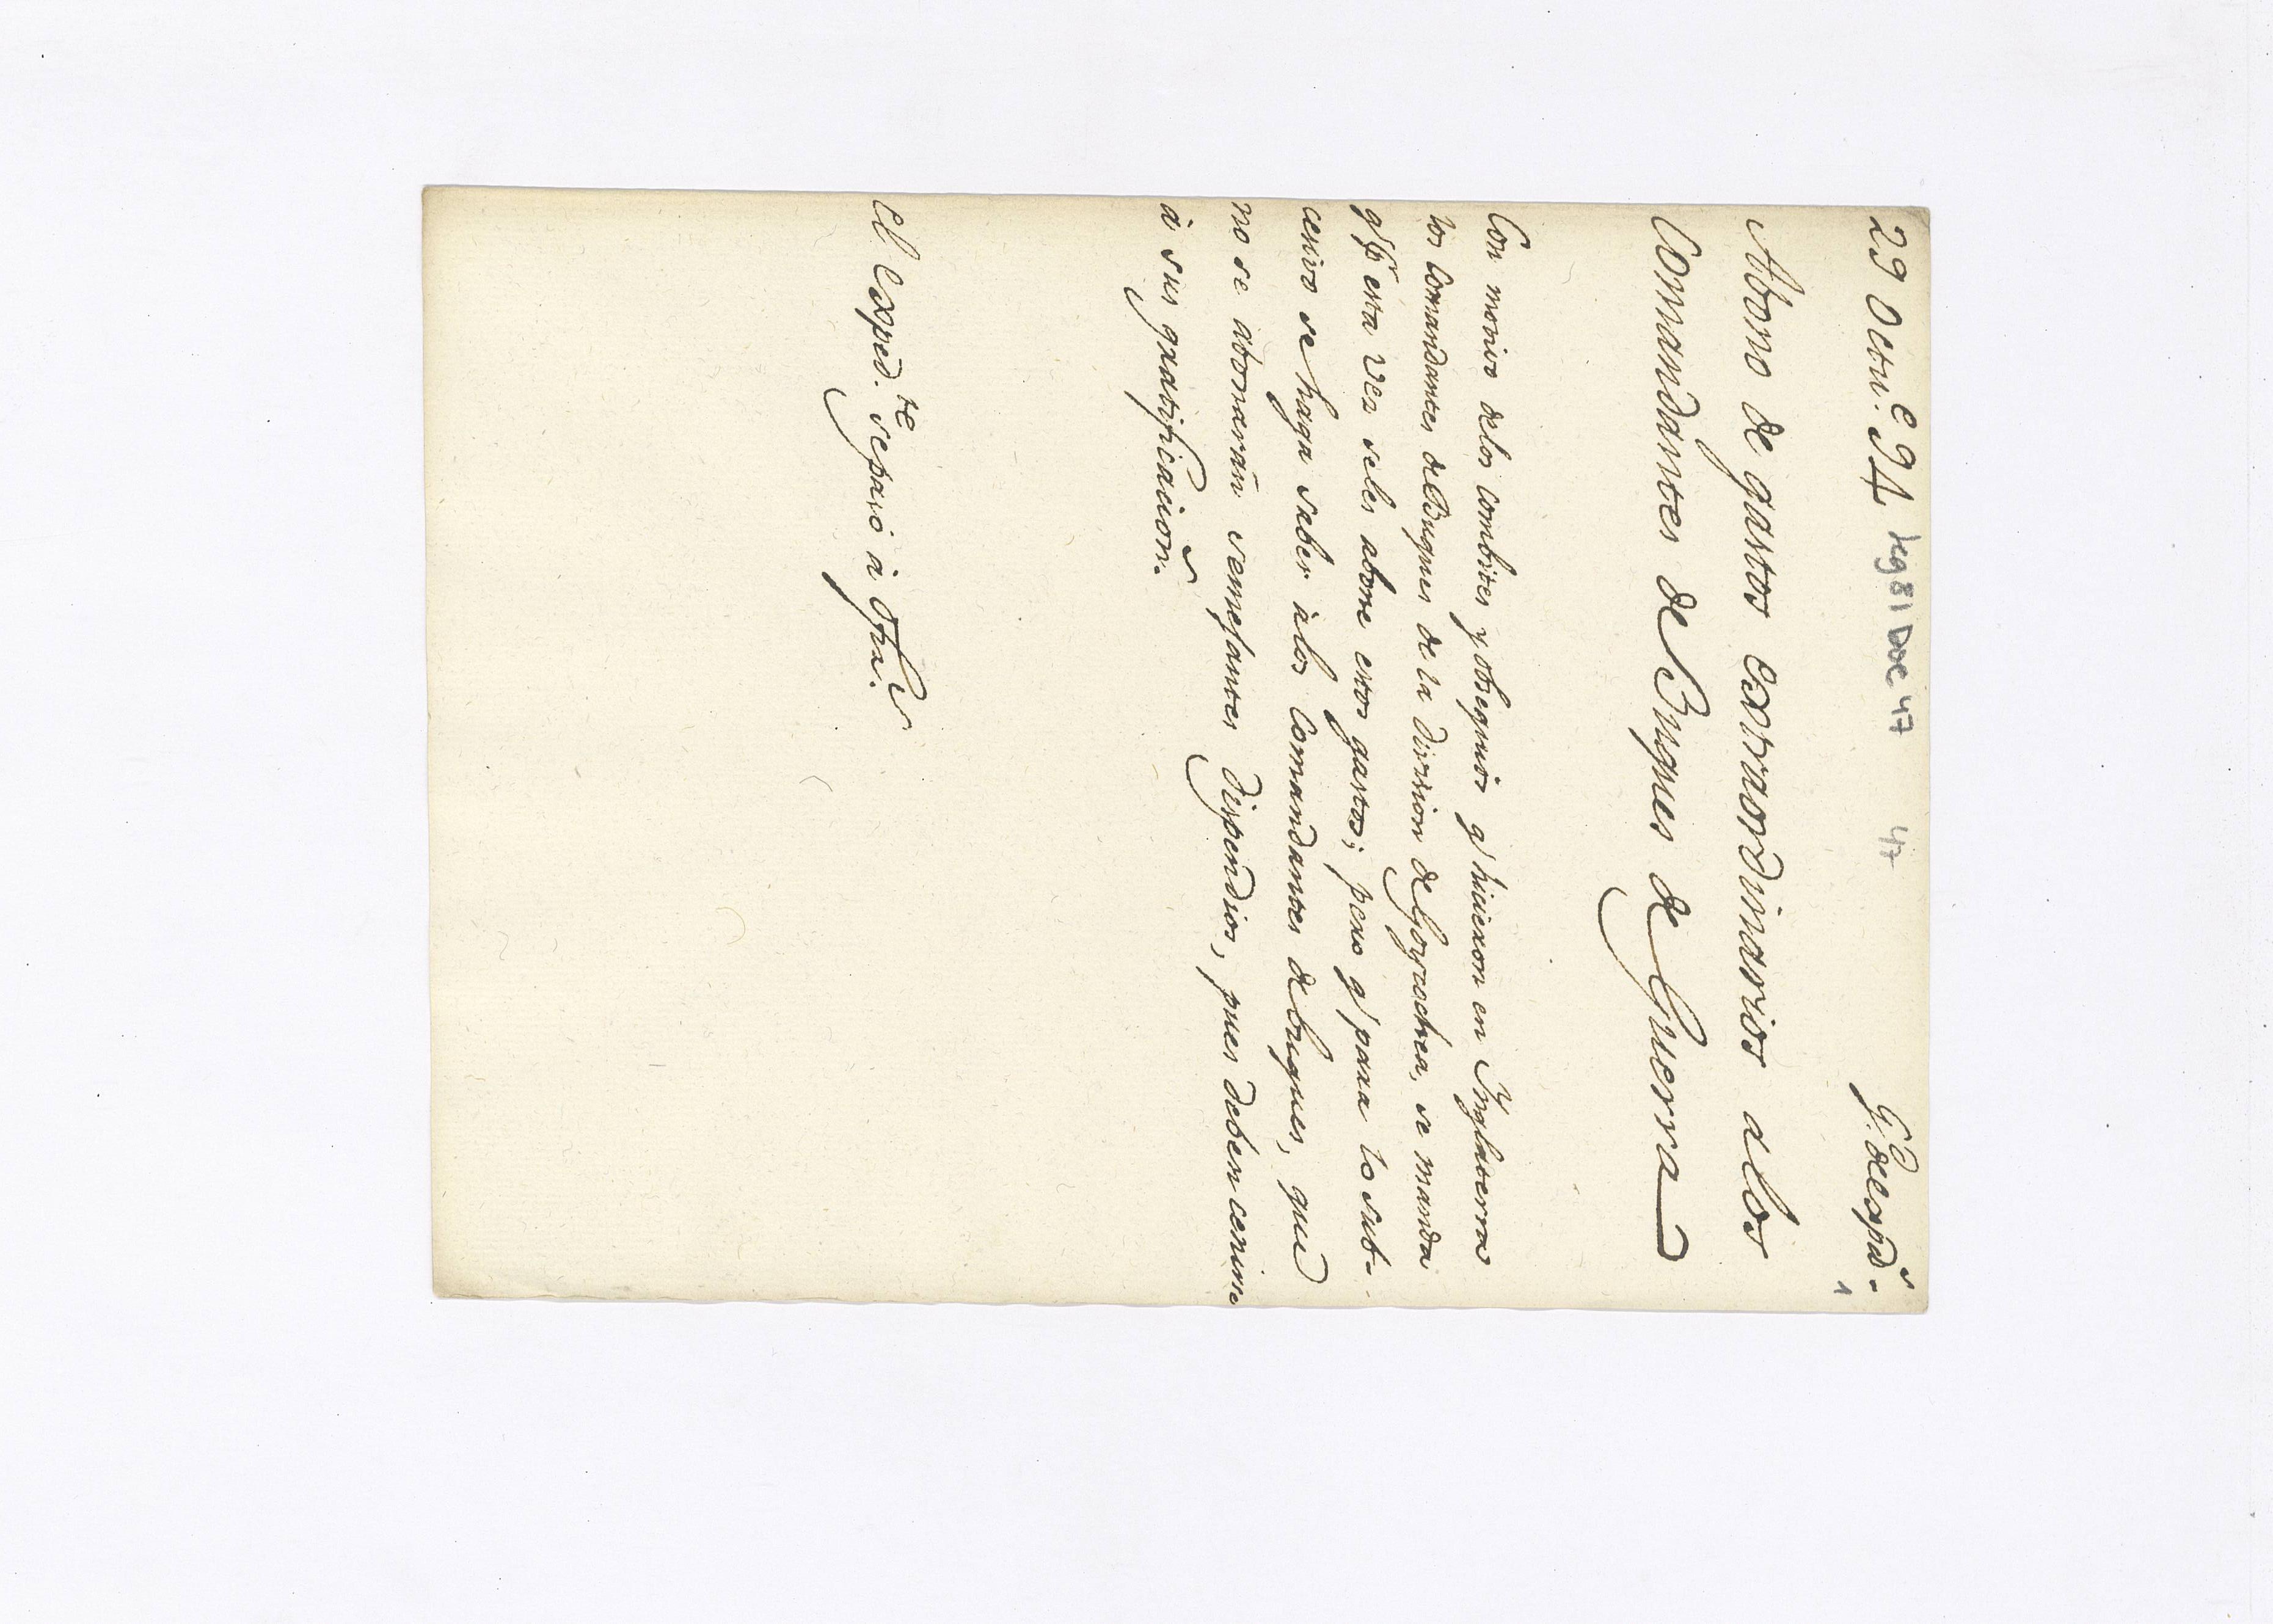 29 Octu.e 94 leg 81 Doc 47 47 G.o de exp.d
1
Abono de gastos extraordinarios alos
Comandantes de Buques de Guerra
Con motivo delos combites y obsequios q.e hicieron en Ynglaterra
los Comandantes de Buques de la Division de Goycochea, se manda
q.e p.r esta vez seles abone estos gastos; pero q.e para lo sub-
cesivo se haga saber àlos Comandantes de buques, que
no se abonaràn semejantes dispendios, pues deben ceñirse
à sus gratificacion.s
el exped.te sepasò à